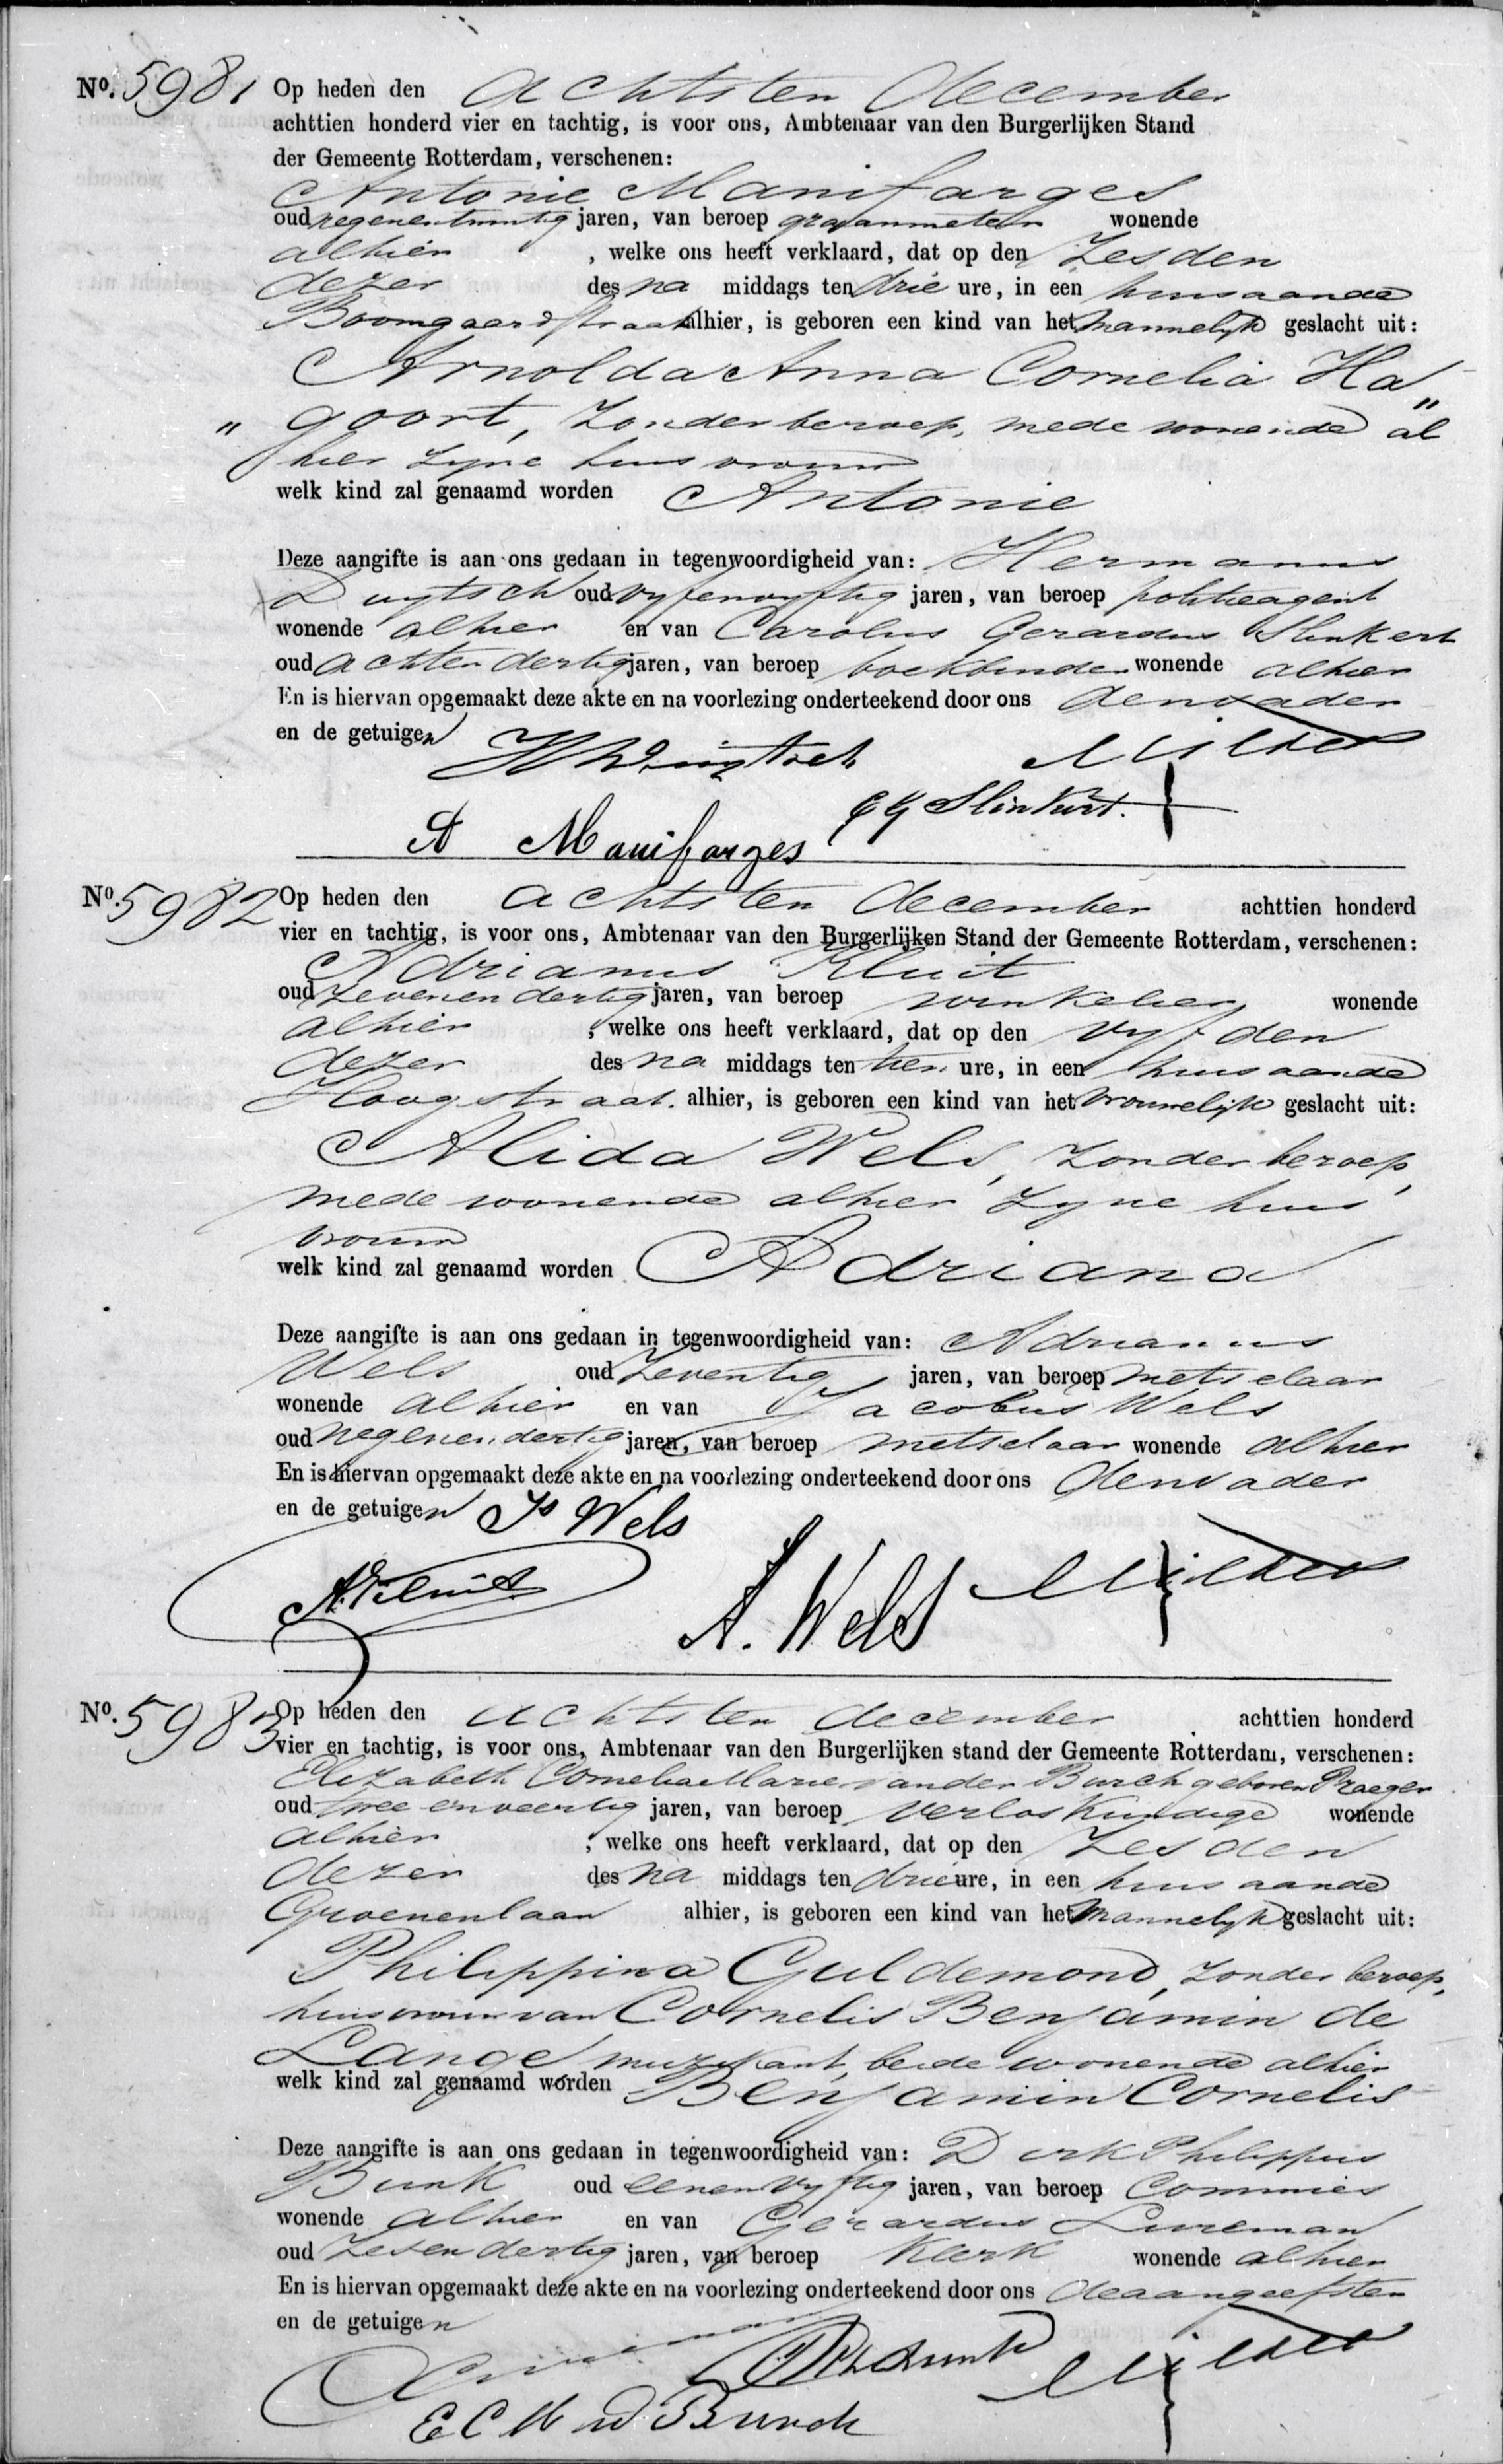 No. 5981 Op heden den achtsten december
achttien honderd vier en tachtig, is voor ons, Ambtenaar van den Burgerlijken Stand
der Gemeente Rotterdam, verschenen:
Antonie Manifarges
oud negenentwintig jaren, van beroep graanmeter wonende
alhier , welke ons heeft verklaard, dat op den zesden
dezer des na middags ten drie ure, in een huis aande
Boomgaardstraat alhier, is geboren een kind van het mannelijk geslacht uit:
Arnolda Anna Cornelia Ha„
„goort, zonder beroep, mede wonende al
hier zyne huisvrouw
welk kind zal genaamd worden Antonie
Deze aangifte is aan ons gedaan in tegenwoordigheid van: Hermanus
Duytsch oud vyfenvyftig jaren, van beroep politieagent
wonende alhier en van Carolus Gerardus Slinkert
oud achtendertig jaren, van beroep boekbinder wonende alhier
En is hiervan opgemaakt deze akte en na voorlezing onderteekend door ons den vader
en de getuigen
H Duytsch
C G Slinkert.
A Manifarges
No. 5982 Op heden den achtsten december achttien honderd
vier en tachtig, is voor ons, Ambtenaar van den Burgerlijken Stand der Gemeente Rotterdam, verschenen:
Adrianus Kluit
oud zevenendertig jaren, van beroep winkelier wonende
alhier , welke ons heeft verklaard, dat op den vyfden
dezer des na middags ten tien ure, in een huis aande
Hoogstraat. alhier, is geboren een kind van het vrouwelijk geslacht uit:
Alida Wels, zonder beroep,
mede wonende alhier zyne huis
vrouw
welk kind zal genaamd worden Adriana
Deze aangifte is aan ons gedaan in tegenwoordigheid van: Adrianus
Wels oud zeventig jaren, van beroep metselaar
wonende alhier en van Jacobus Wels
oud negenendertig jaren, van beroep metselaar wonende alhier
En is hiervan opgemaakt deze akte en na voorlezing onderteekend door ons den vader
en de getuigen Js Wels
A. Kluit
A. Wels
No. 5983 Op heden den achtsten december achttien honderd
vier en tachtig, is voor ons, Ambtenaar van den Burgerlijken stand der Gemeente Rotterdam, verschenen:
Elizabeth Cornelia Maria van der Burch geboren Praeger
oud twee en veertig jaren, van beroep verloskundige wonende
alhier , welke ons heeft verklaard, dat op den zesden
dezer des na middags ten drie ure, in een huis aande
Groenenlaan alhier, is geboren een kind van het mannelyk geslacht uit:
Philippina Guldemond, zonder beroep,
huisvrouw van Cornelis Benjamin de
Lange, muzykant, beide wonende alhier
welk kind zal genaamd worden Benjamin Cornelis
Deze aangifte is aan ons gedaan in tegenwoordigheid van: Dirk Philippus
Bunk oud eenenvyftig jaren, van beroep commies
wonende alhier en van Gerardus Lureman
oud zesendertig jaren, van beroep klerk wonende alhier
En is hiervan opgemaakt deze akte en na voorlezing onderteekend door ons de aangeefster
en de getuigen
E C M vd Burch